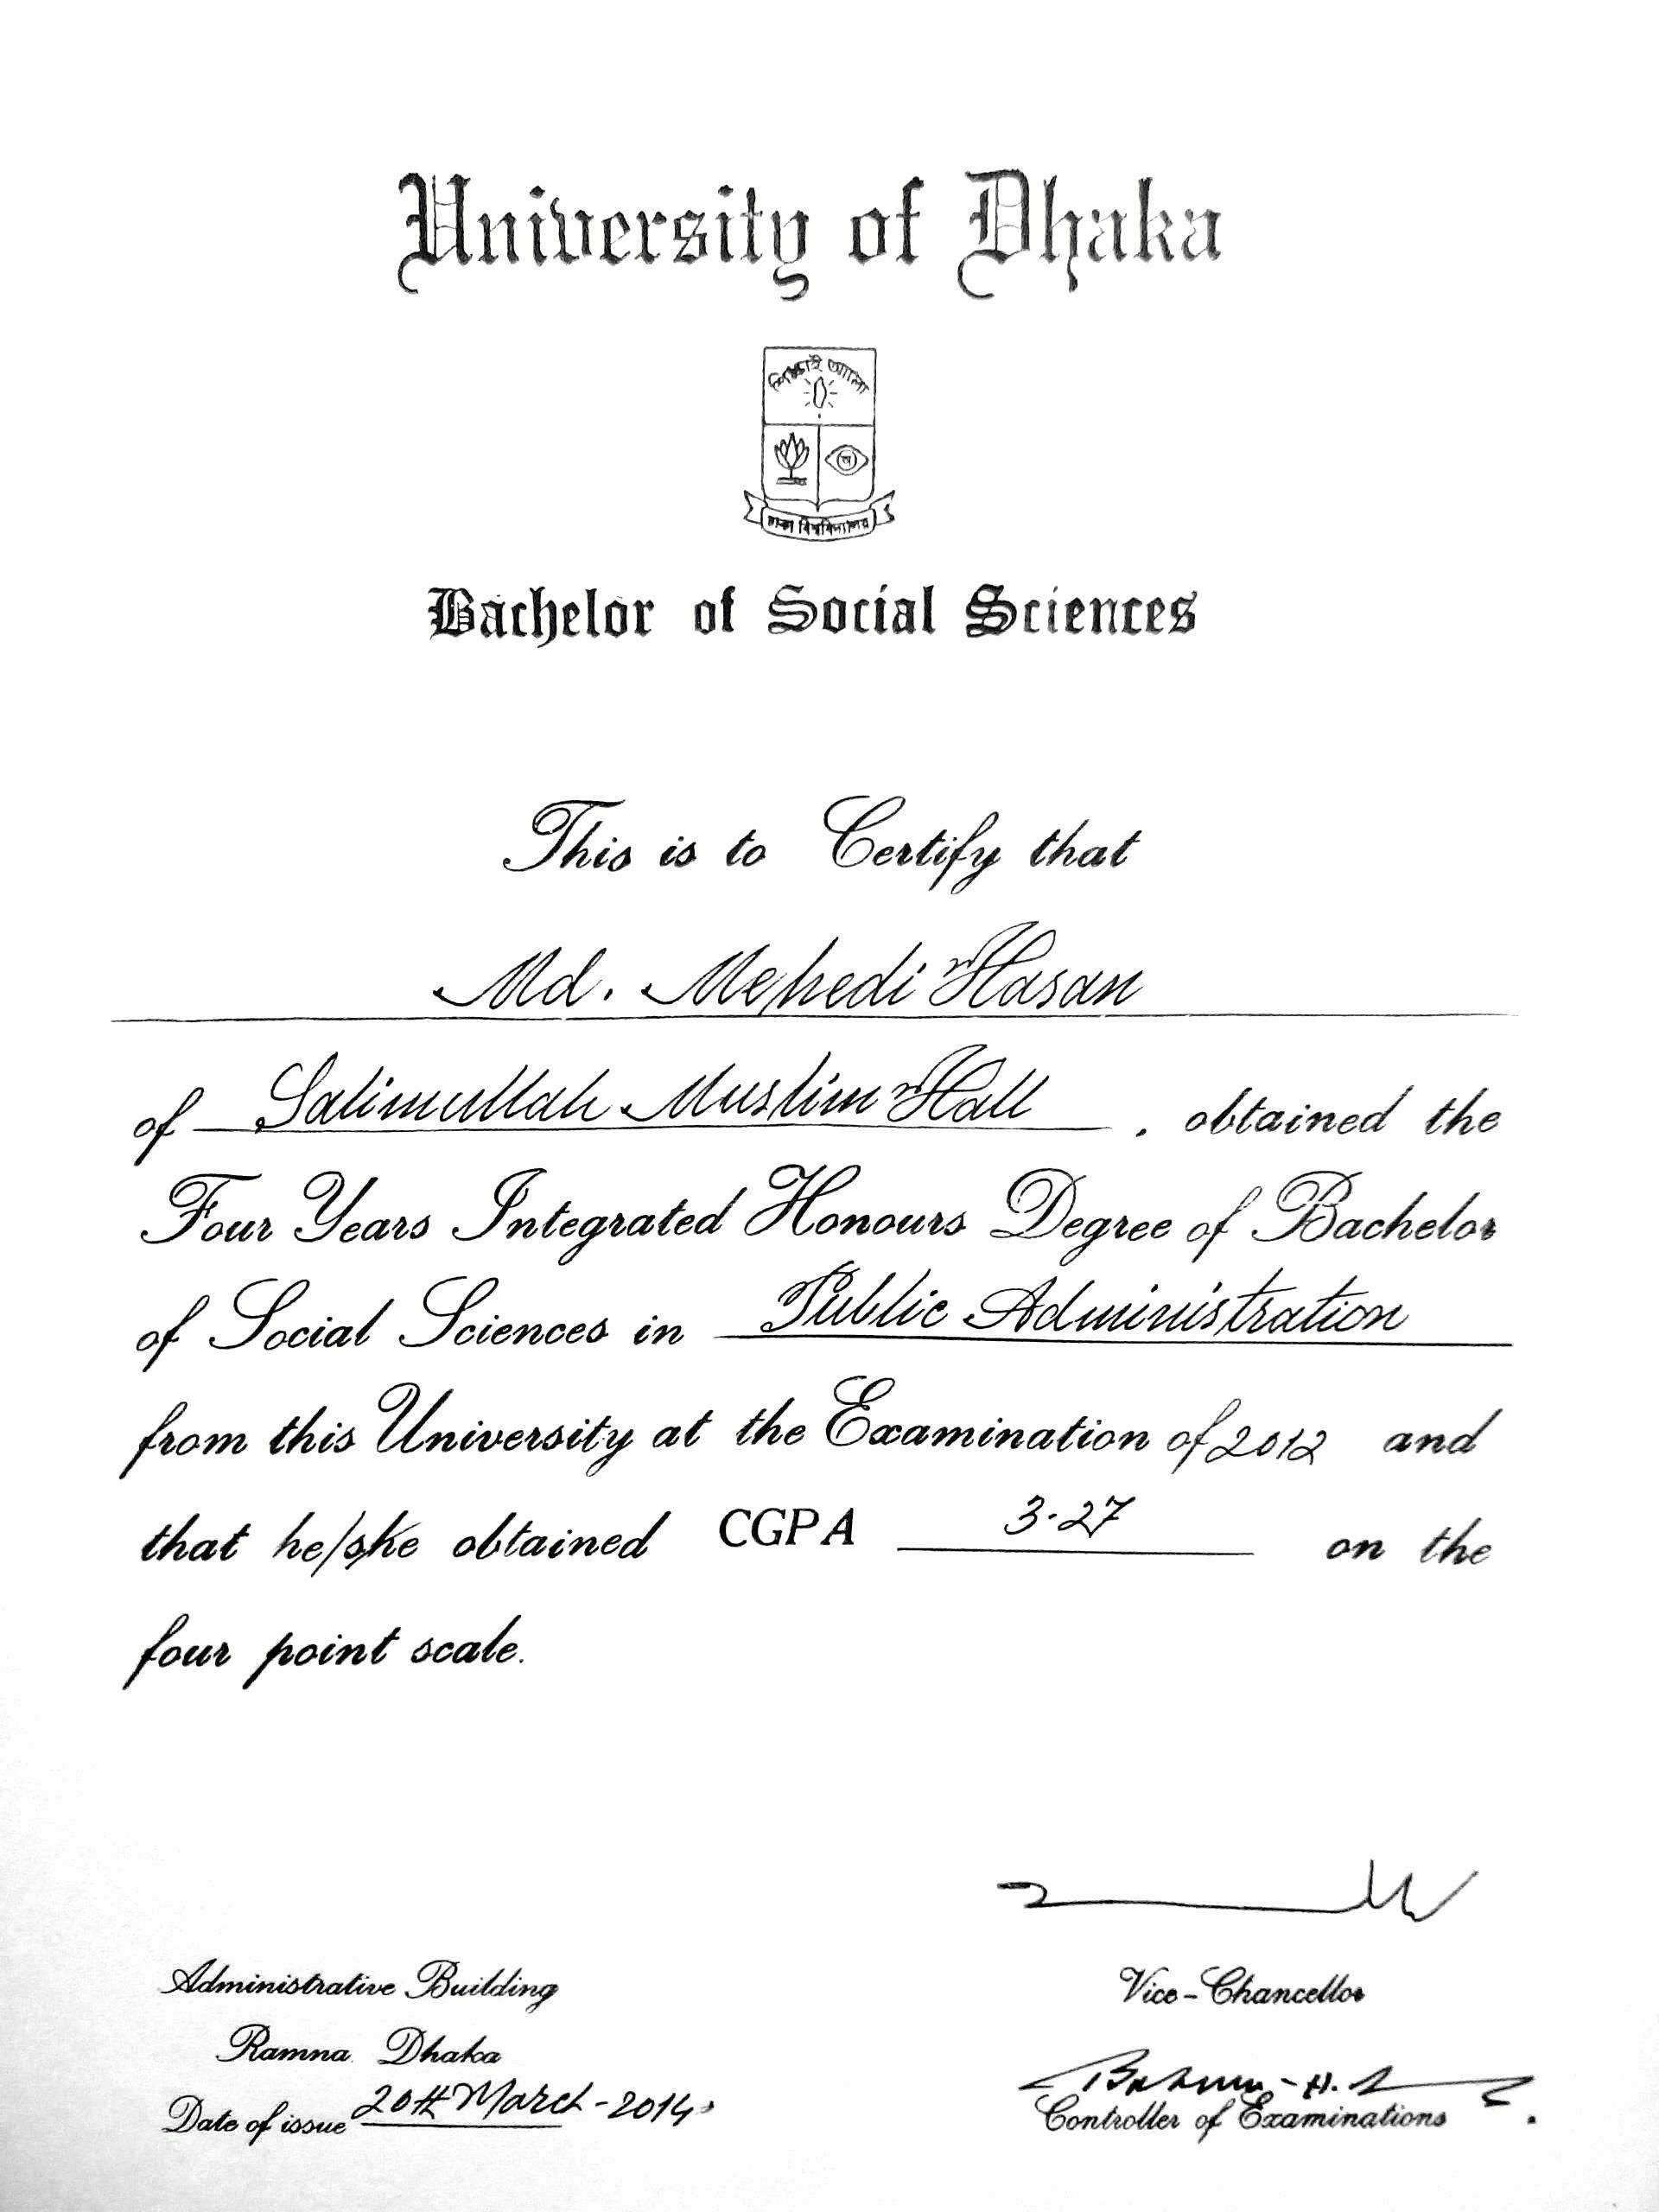 University of Dhaka
শিক্ষাই আলো
অ
ঢাকা বিশ্ববিদ্যালয়
Bachelor of Social Sciences
This is to Certify that
Md. Mehedi Hasan
of Salimullah Muslim Hall , obtained the
Four Years Integrated Honours Degree of Bachelor
of Social Sciences in Public Administration
from this University at the Examination of 2012 and
that he/she obtained CGPA 3.27 on the
four point scale.
Administrative Building
Vice-Chancellor
Ramna. Dhaka
Date of issue 20th March-2014
Controller of Examinations